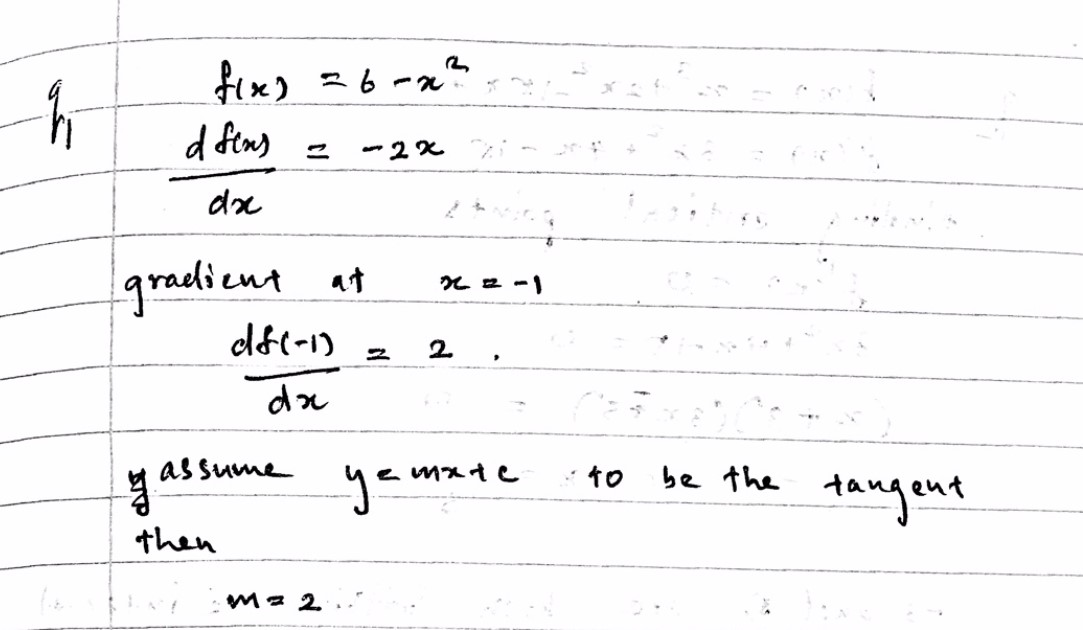 q1 f(x) = 6 - x²
d f(x) = -2x
dx
gradient at x = -1
df(-1) = 2 .
dx
assume y = mx + c to be the tangent
then
m = 2